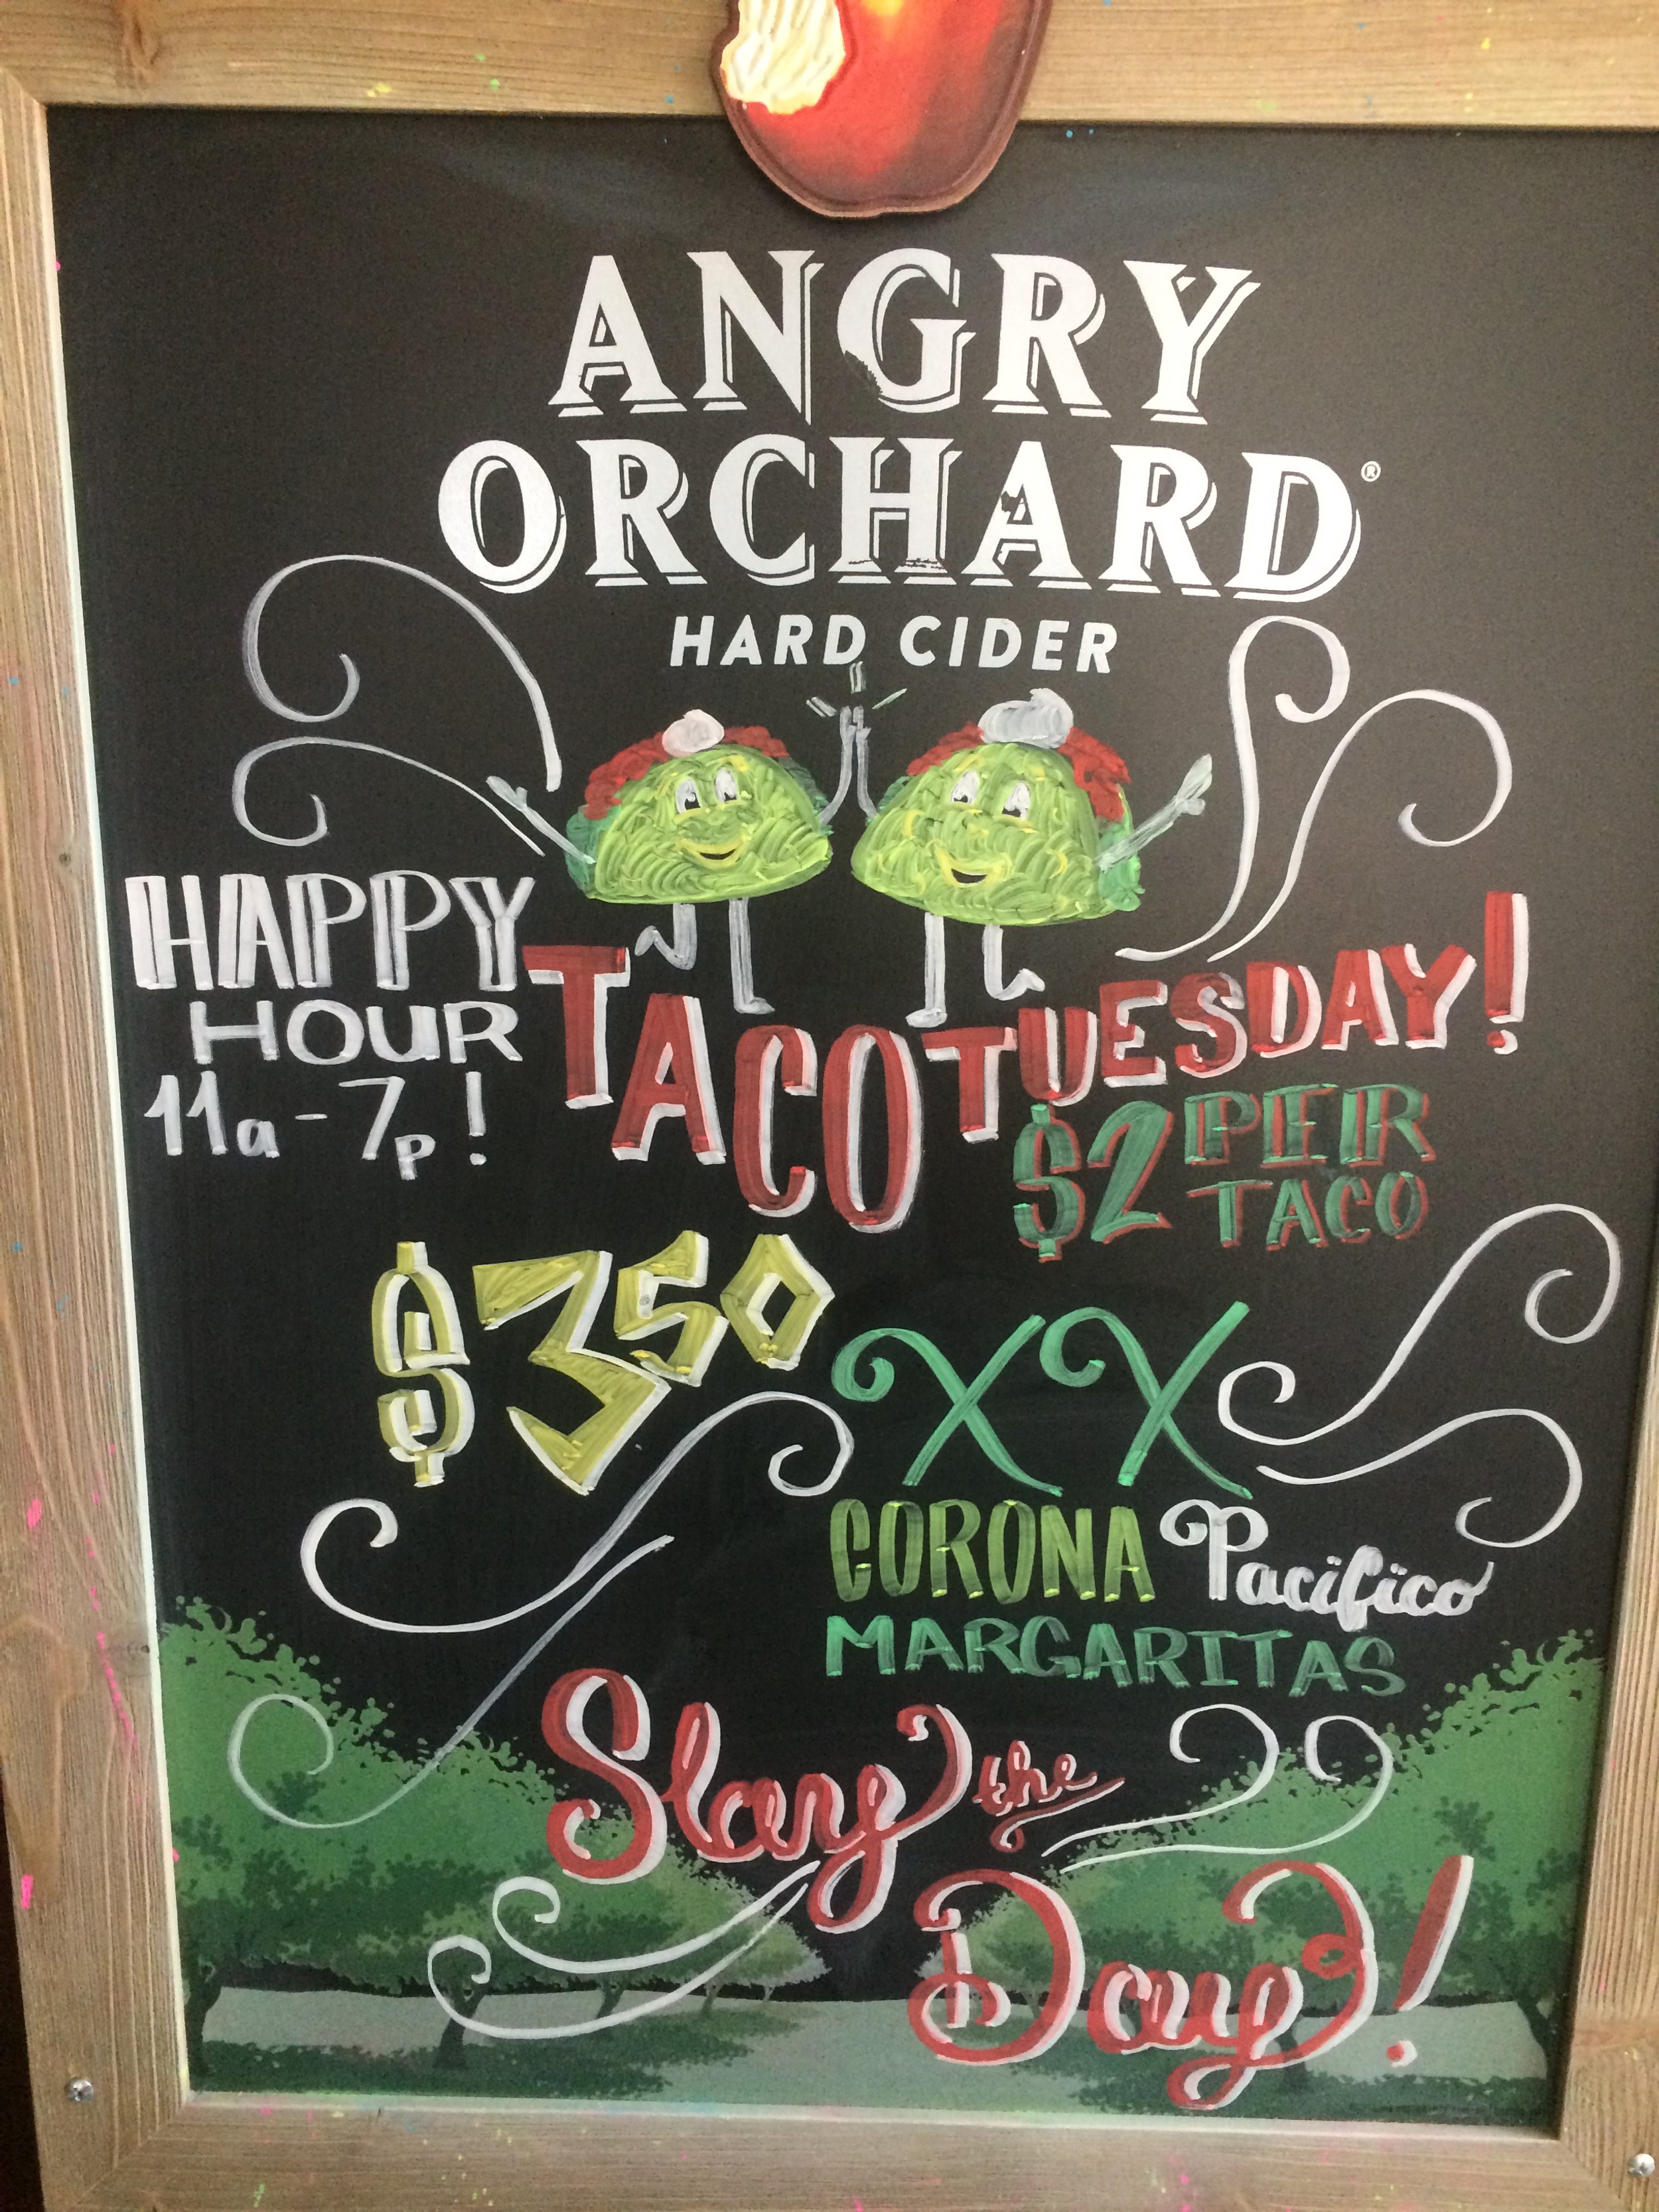 ANGRY
ORCHARD®
HARD CIDER
HAPPY
HOUR
11a-7p!
TACO TUESDAY!
$2 PER
TACO
$350
XX
CORONA Pacifico
MARGARITAS
Slay the
Day!